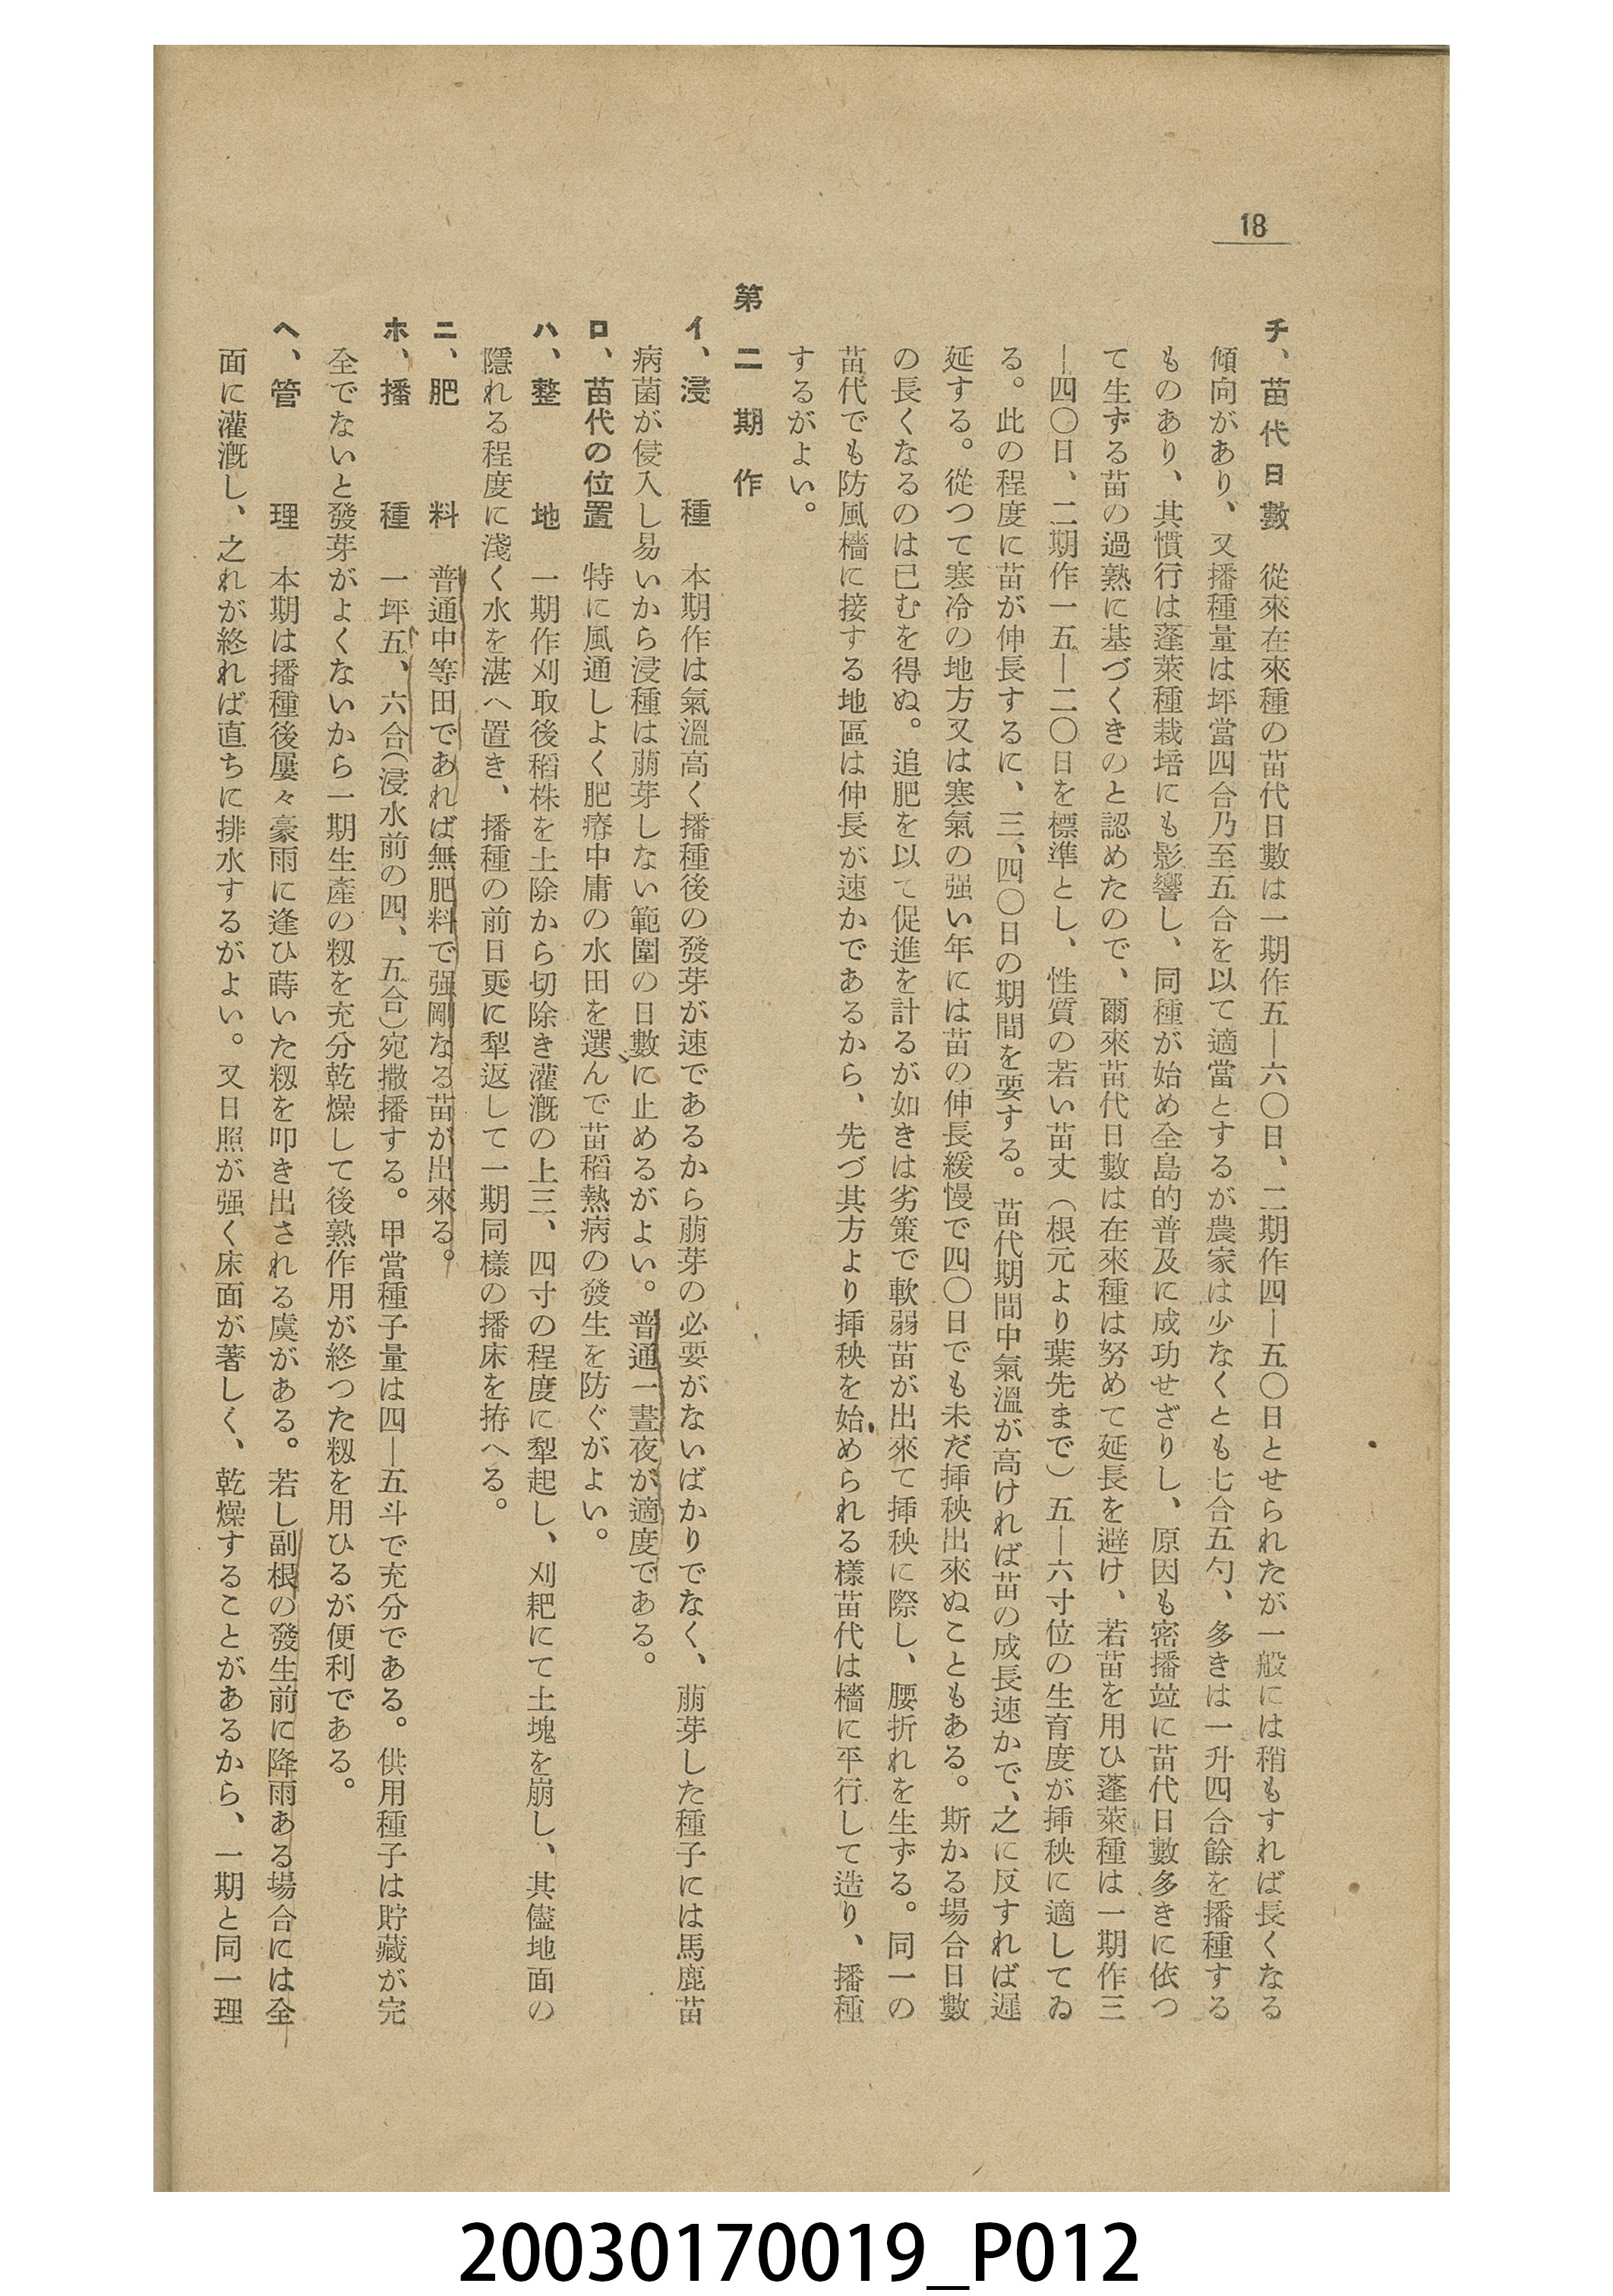 18
チ、苗代日數　從來在來種の苗代日數は一期作五―六〇日、二期作四―五〇日とせられたが一般には稍もすれば長くなる
傾向があり、又播種量は坪當四合乃至五合を以て適當とするが農家は少なくとも七合五勺、多きは一升四合餘を播種する
ものあり、其慣行は蓬萊種栽培にも影響し、同種が始め全島的普及に成功せざりし、原因も密播竝に苗代日數多きに依つ
て生ずる苗の過熟に基づくきのと認めたので、爾來苗代日數は在來種は努めて延長を避け、若苗を用ひ蓬萊種は一期作三
―四〇日、二期作一五―二〇日を標準とし、性質の若い苗丈（根元より葉先まで）五―六寸位の生育度が挿秧に適してゐ
る。此の程度に苗が伸長するに、三、四〇日の期間を要する。苗代期間中氣溫が高ければ苗の成長速かで、之に反すれば遲
延する。從つて寒冷の地方又は寒氣の强い年には苗の伸長緩慢で四〇日でも未だ挿秧出來ぬこともある。斯かる場合日數
の長くなるのは已むを得ぬ。追肥を以て促進を計るが如きは劣策で軟弱苗が出來て挿秧に際し、腰折れを生ずる。同一の
苗代でも防風檣に接する地區は伸長が速かであるから、先づ其方より挿秧を始められる樣苗代は檣に平行して造り、播種
するがよい。
第二期作
イ、浸種　本期作は氣溫高く播種後の發芽が速であるから萠芽の必要がないばかりでなく、萠芽した種子には馬鹿苗
病菌が侵入し易いから浸種は萠芽しない範圍の日數に止めるがよい。普通一晝夜が適度である。
ロ、苗代の位置　特に風通しよく肥瘠中庸の水田を選んで苗稻熱病の發生を防ぐがよい。
ハ、整地　一期作刈取後稻株を土除から切除き灌漑の上三、四寸の程度に犁起し、刈耙にて土塊を崩し、其儘地面の
隱れる程度に淺く水を湛へ置き、播種の前日更に犁返して一期同樣の播床を拵へる。
ニ、肥料　普通中等田であれば無肥料で强剛なる苗が出來る。
ホ、播種　一坪五、六合（浸水前の四、五合）宛撒播する。甲當種子量は四―五斗で充分である。供用種子は貯藏が完
全でないと發芽がよくないから一期生產の籾を充分乾燥して後熟作用が終つた籾を用ひるが便利である。
ヘ、管理　本期は播種後屢々豪雨に逢ひ蒔いた籾を叩き出される虞がある。若し副根の發生前に降雨ある場合には全
面に灌漑し、之れが終れば直ちに排水するがよい。又日照が强く床面が著しく、乾燥することがあるから、一期と同一理
20030170019_P012